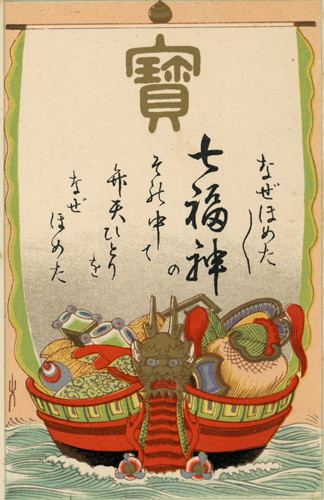 寶
なぜほめた〳〵
七福神の
その中て
弁天ひとりを
なぜ
ほめた